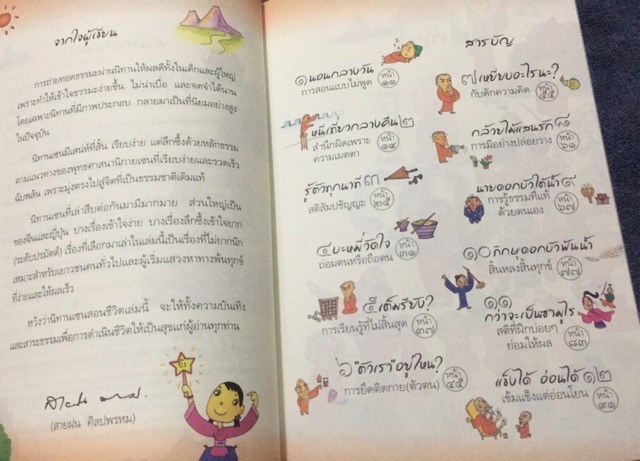 จากใจผู้เขียน
การถ่ายทอดธรรมะผ่านนิทานให้ผลดีทั้งในเด็กและผู้ใหญ่
เพราะทำให้เข้าใจธรรมะง่ายขึ้น ไม่น่าเบื่อ และจดจำได้นาน
โดยเฉพาะนิทานที่มีภาพประกอบ กลายมาเป็นที่นิยมอย่างสูง
ในปัจจุบัน
นิทานเซนมีเสน่ห์ที่สั้น เรียบง่าย แต่ลึกซึ้งด้วยหลักธรรม
ตามแนวทางของพุทธศาสนานิกายเซนที่เรียบง่ายและรวดเร็ว
ฉับพลัน เพราะมุ่งตรงไปสู่จิตที่เป็นธรรมชาติเดิมแท้
นิทานเซนที่เล่าสืบต่อกันมามีมากมาย ส่วนใหญ่เป็น
ของจีนและญี่ปุ่น บางเรื่องเข้าใจง่าย บางเรื่องลึกซึ้งเข้าใจยาก
(ระดับปรมัตถ์) เรื่องที่เลือกมาเล่าในเล่มนี้เป็นเรื่องที่ไม่ยากนัก
เหมาะสำหรับเยาวชนคนทั่วไปและผู้เริ่มแสวงหาทางพ้นทุกข์
ที่ง่ายและให้ผลเร็ว
หวังว่านิทานเซนสอนชีวิตเล่มนี้ จะให้ทั้งความบันเทิง
และสาระธรรมเพื่อการดำเนินชีวิตให้เป็นสุขแก่ผู้อ่านทุกท่าน
(สายฝน ศิลปพรหม)
สารบัญ
๑ นอนกลางวัน
การสอนแบบไม่พูด
หน้า ๑๑
หนีเที่ยวกลางคืน ๒
สำนึกผิดเพราะ
ความเมตตา
หน้า ๑๙
รู้ตัวทุกนาที ๓
สติสัมปชัญญะ
หน้า ๒๕
๔ บะหมี่วัดใจ
ถ่อมตนหรือถือตน
หน้า ๓๑
๕ เต็มรึยัง?
การเรียนรู้ที่ไม่สิ้นสุด
หน้า ๓๗
๖ "ตัวเรา" อยู่ไหน?
การยึดติดกาย(ตัวตน)
หน้า ๔๕
๗ เหยียบอะไรนะ?
กับดักความคิด
หน้า ๕๕
กล้วยไม้แสนรัก ๘
การมีอย่างปล่อยวาง
หน้า ๖๑
นายดอกบัวใต้น้ำ ๙
การรู้ธรรมที่แท้
ด้วยตนเอง
หน้า ๖๗
๑๐ ภิกษุดอกบัวพ้นน้ำ
สิ้นหลงสิ้นทุกข์
หน้า ๗๗
๑๑
กว่าจะเป็นซามูไร
สติที่ฝึกบ่อยๆ
ย่อมให้ผล
หน้า ๘๓
แข็งได้ อ่อนได้ ๑๒
เข้มแข็งแต่อ่อนโยน
หน้า ๙๑